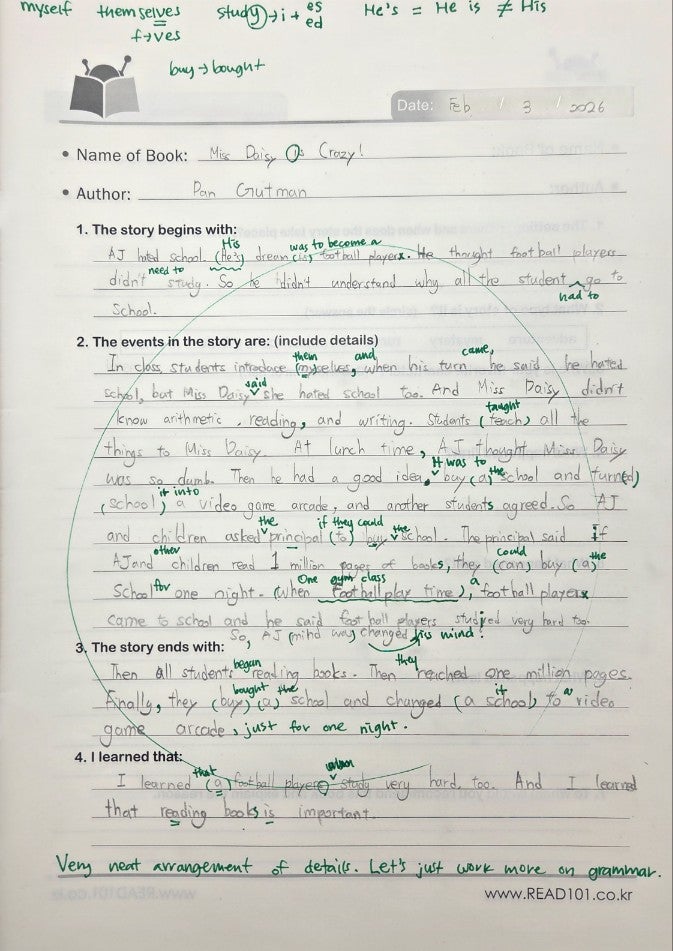 myself themselves study → i + es
f→ves ed He's = He is ≠ His
buy → bought
Date: Feb / 3 / 2026
• Name of Book: Miss Daisy Is Crazy!
• Author: Dan Gutman
1. The story begins with:
His was to become a
AJ hated school. (He's) dream (is) football players. He thought football players
need to
didn't study. So he didn't understand why all the student go to
had to
School.
2. The events in the story are: (include details)
them and came,
In class, students introduce (myselves, when his turn he said he hated
said
school, but Miss Daisy she hated school too. And Miss Daisy didn't
taught
know arithmetic, reading, and writing. Students (teach) all the
things to Miss Daisy. At lunch time, AJ thought Miss Daisy
It was to the
was so dumb. Then he had a good idea, buy (a) school and turned)
it into
(school) a video game arcade, and another students agreed. So AJ
the if they could the
and children asked principal (to) buy school. The principal said if
other could the
AJ and children read 1 million pages of books, they (can) buy (a)
for One gym class a
School one night. (When football play time), football players
came to school and he said football players studied very hard too.
So, AJ (mind was) changed his mind!
3. The story ends with:
began they
Then all students reading books. Then reached one million pages.
bought the it a
Finally, they (buy) (a) school and changed (a school) to video
game arcade, just for one night.
4. I learned that:
that
I learned (a) football players study very hard, too. And I learned
that reading books is important.
Very neat arrangement of details. Let's just work more on grammar.
www.READ101.co.kr